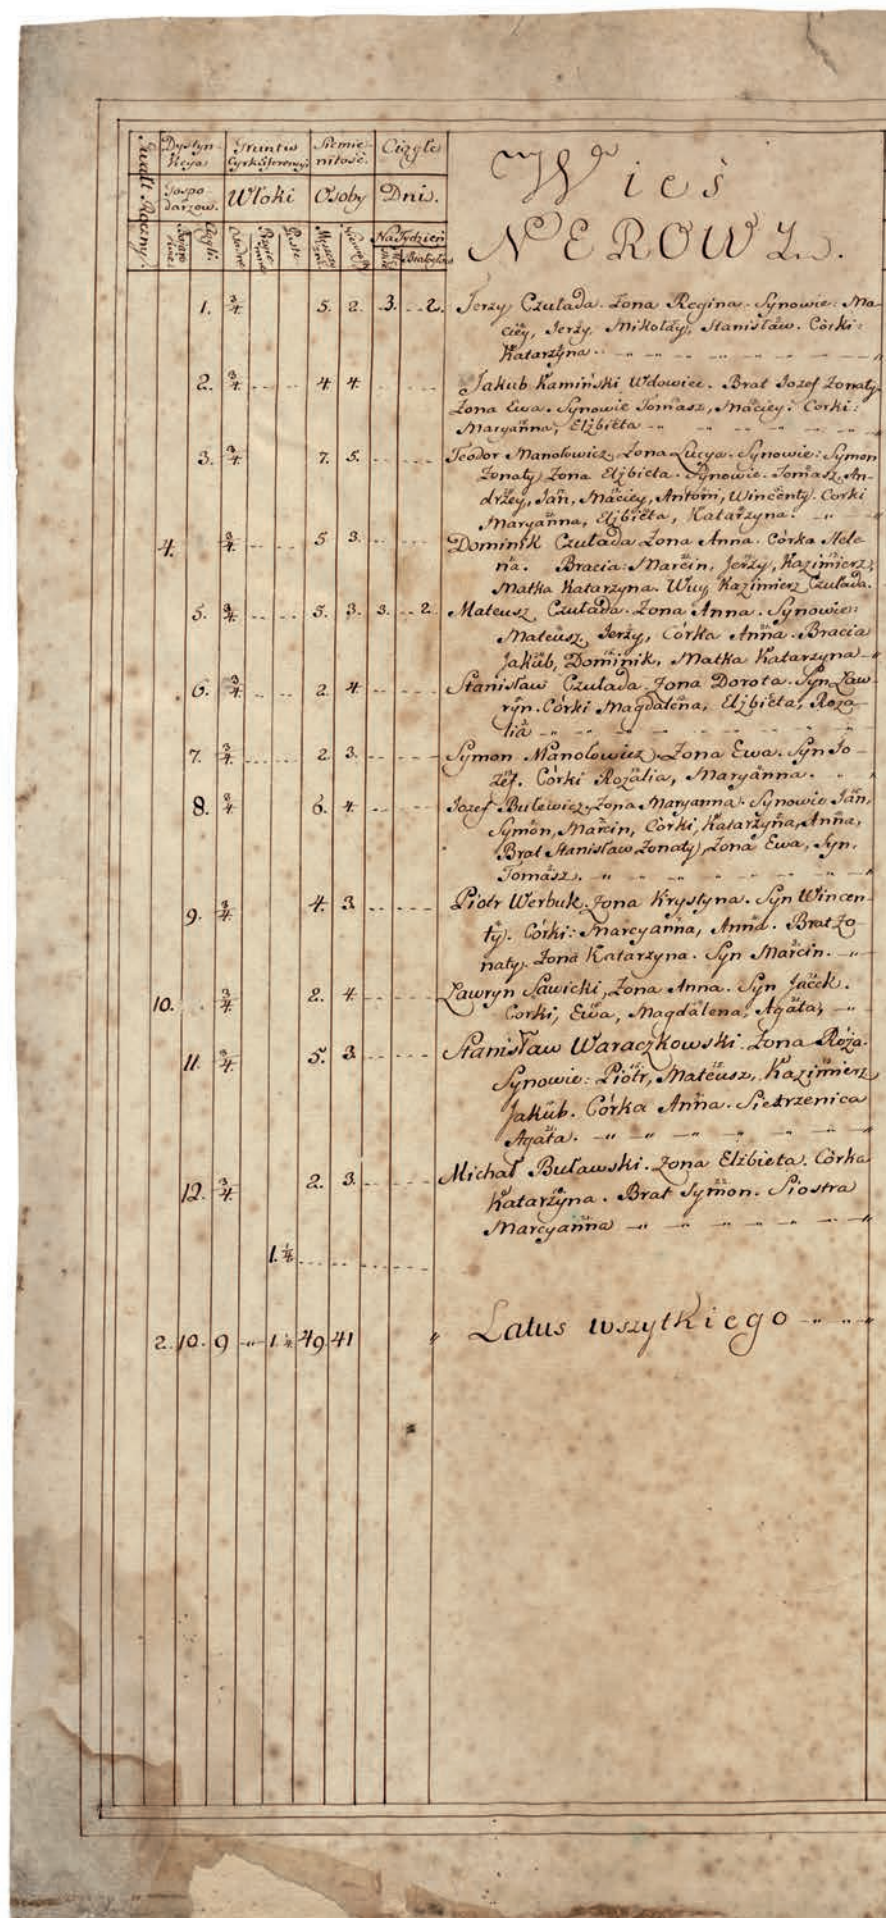 Gwałt Roczny.
Dystyn- Gruntu Siemie- Ciągłe
keya Cyrkuferencyi nitość.
Gospo- Włoki Osoby Dni.
darzow.
Na Tydzień
Ciągli. Osiadłe Puste
Wieś
NEROWZ.
1. 3/4 5. 2. 3. 2. Jerzy Czułada. Żona Regina. Synowie: Ma-
ciey, Jerzy, Mikołay, Stanisław. Córki:
Katarzyna.
2. 3/4 4 4. Jakub Kamiński Wdowiec. Brat Jozef Żonaty.
Żona Ewa. Synowie Tomasz, Maciey. Corki:
Maryanna, Elżbieta
3. 3/4 7. 5. Teodor Manołowicz, Żona Łucya. Synowie: Symon
Żonaty Żona Elżbieta. Synowie. Tomasz, An-
drzey, Jan, Maciey, Antoni, Wincenty. Corki
Maryanna, Elżbieta, Katarzyna.
4. 3/4 5 3. Dominik Czułada Żona Anna. Córka Hele-
na. Bracia: Marcin, Jerzy, Kazimierz,
Matka Katarzyna. Wuy Kazimierz Czułada.
5. 3/4 5. 3. 3. 2. Mateusz Czułada. Żona Anna. Synowie:
Mateusz, Jerzy, Córka Anna. Bracia
Jakub, Dominik, Matka Katarzyna
6. 3/4 2. 4 Stanisław Czułada Żona Dorota. Syn Ław-
ryn. Córki Magdalena, Elżbieta, Roza-
lia
7. 3/4 2 3. Symon Manołowicz. Żona Ewa. Syn Jo-
zef. Córki Rozalia, Maryanna.
8. 3/4 6. 4. Jozef Bulewicz, Żona Maryanna. Synowie Jan,
Symon, Marcin, Córki, Katarzyna, Anna,
Brat Stanisław Żonaty, Żona Ewa, Syn,
Tomasz.
9. 3/4 4. 3. Piotr Werbuk. Żona Krystyna. Syn Wincen-
ty. Córki: Marcyanna, Anna. Brat Żo-
naty. Żona Katarzyna. Syn Marcin.
10. 3/4 2. 4. Ławryn Sawicki, Żona Anna. Syn Jacek.
Corki, Ewa, Magdalena, Agata,
11. 3/4 5. 3 Stanisław Waraczkowski. Żona Róża.
Synowie: Piotr, Mateusz, Kazimierz
Jakub. Córka Anna. Siestrzenica
Agata.
12. 3/4 2. 3. Michał Buławski. Żona Elżbieta. Córka
Katarzyna. Brat Symon. Siostra
Marcyanna
1. 1/4
2. 10. 9 1. 1/4 49. 41 Latus wszytkiego